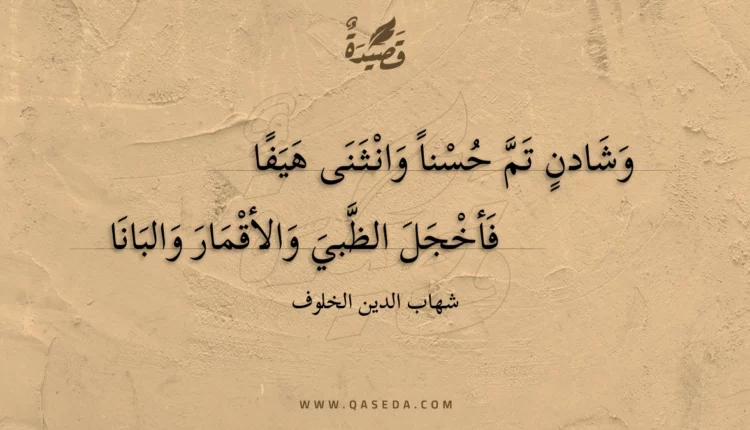 قَصِيْدَةٌ
وَشَادنٍ تَمَّ حُسْناً وَانْثَنَى هَيَفًا
فَأخْجَلَ الظَّبيَ وَالأقْمَارَ وَالبَانَا
شهاب الدين الخلوف
WWW.QASEDA.COM